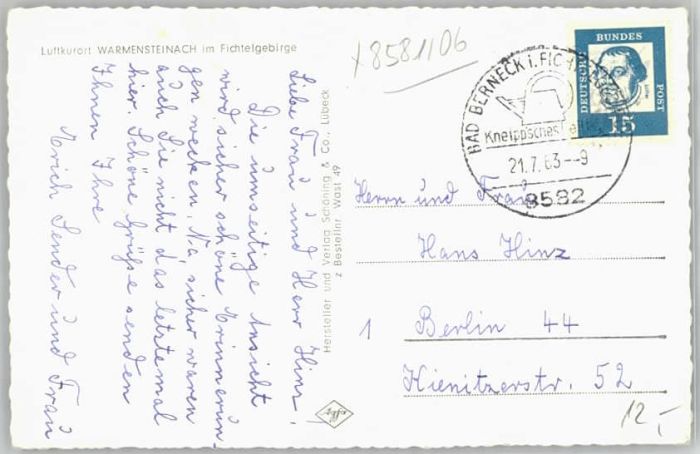 Luftkurort WARMENSTEINACH im Fichtelgebirge
Liebe Frau und Herr Hinz.
Die umseitige Ansicht
wird sicher schöne Erinnerun-
gen wecken. Na sicher waren
auch Sie nicht das letztemal
hier. Schöne Grüße senden
Ihnen Ihre
Erich Sender und Frau
Hersteller und Verlag Schöning & Co., Lübeck
z Bestellnr Wast 49
x 8581106
BAD BERNECK i. FICHTELGEB
Kneippsches
21.7.63--9
8582
DEUTSCHE
BUNDES
POST
15
Herrn und Frau
Hans Hinz
1 Berlin 44
Kienitzerstr. 52
12,-